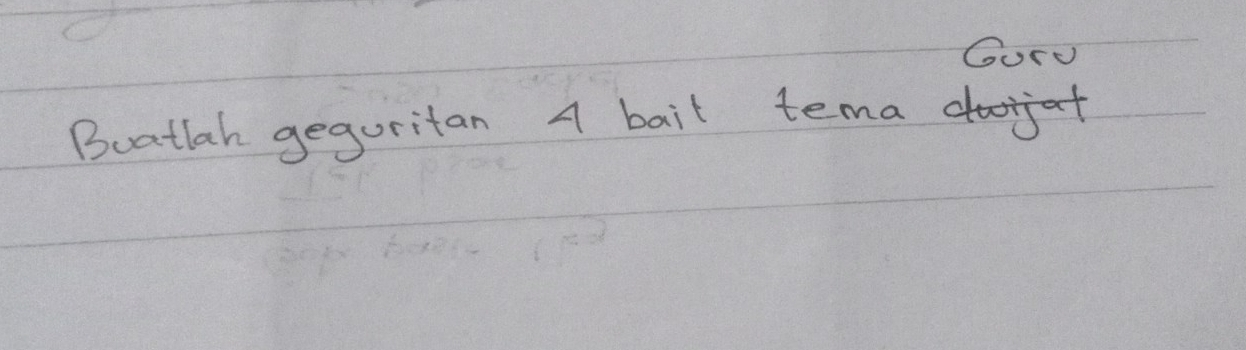 Guru
Buatlah geguritan 4 bait tema dwijat